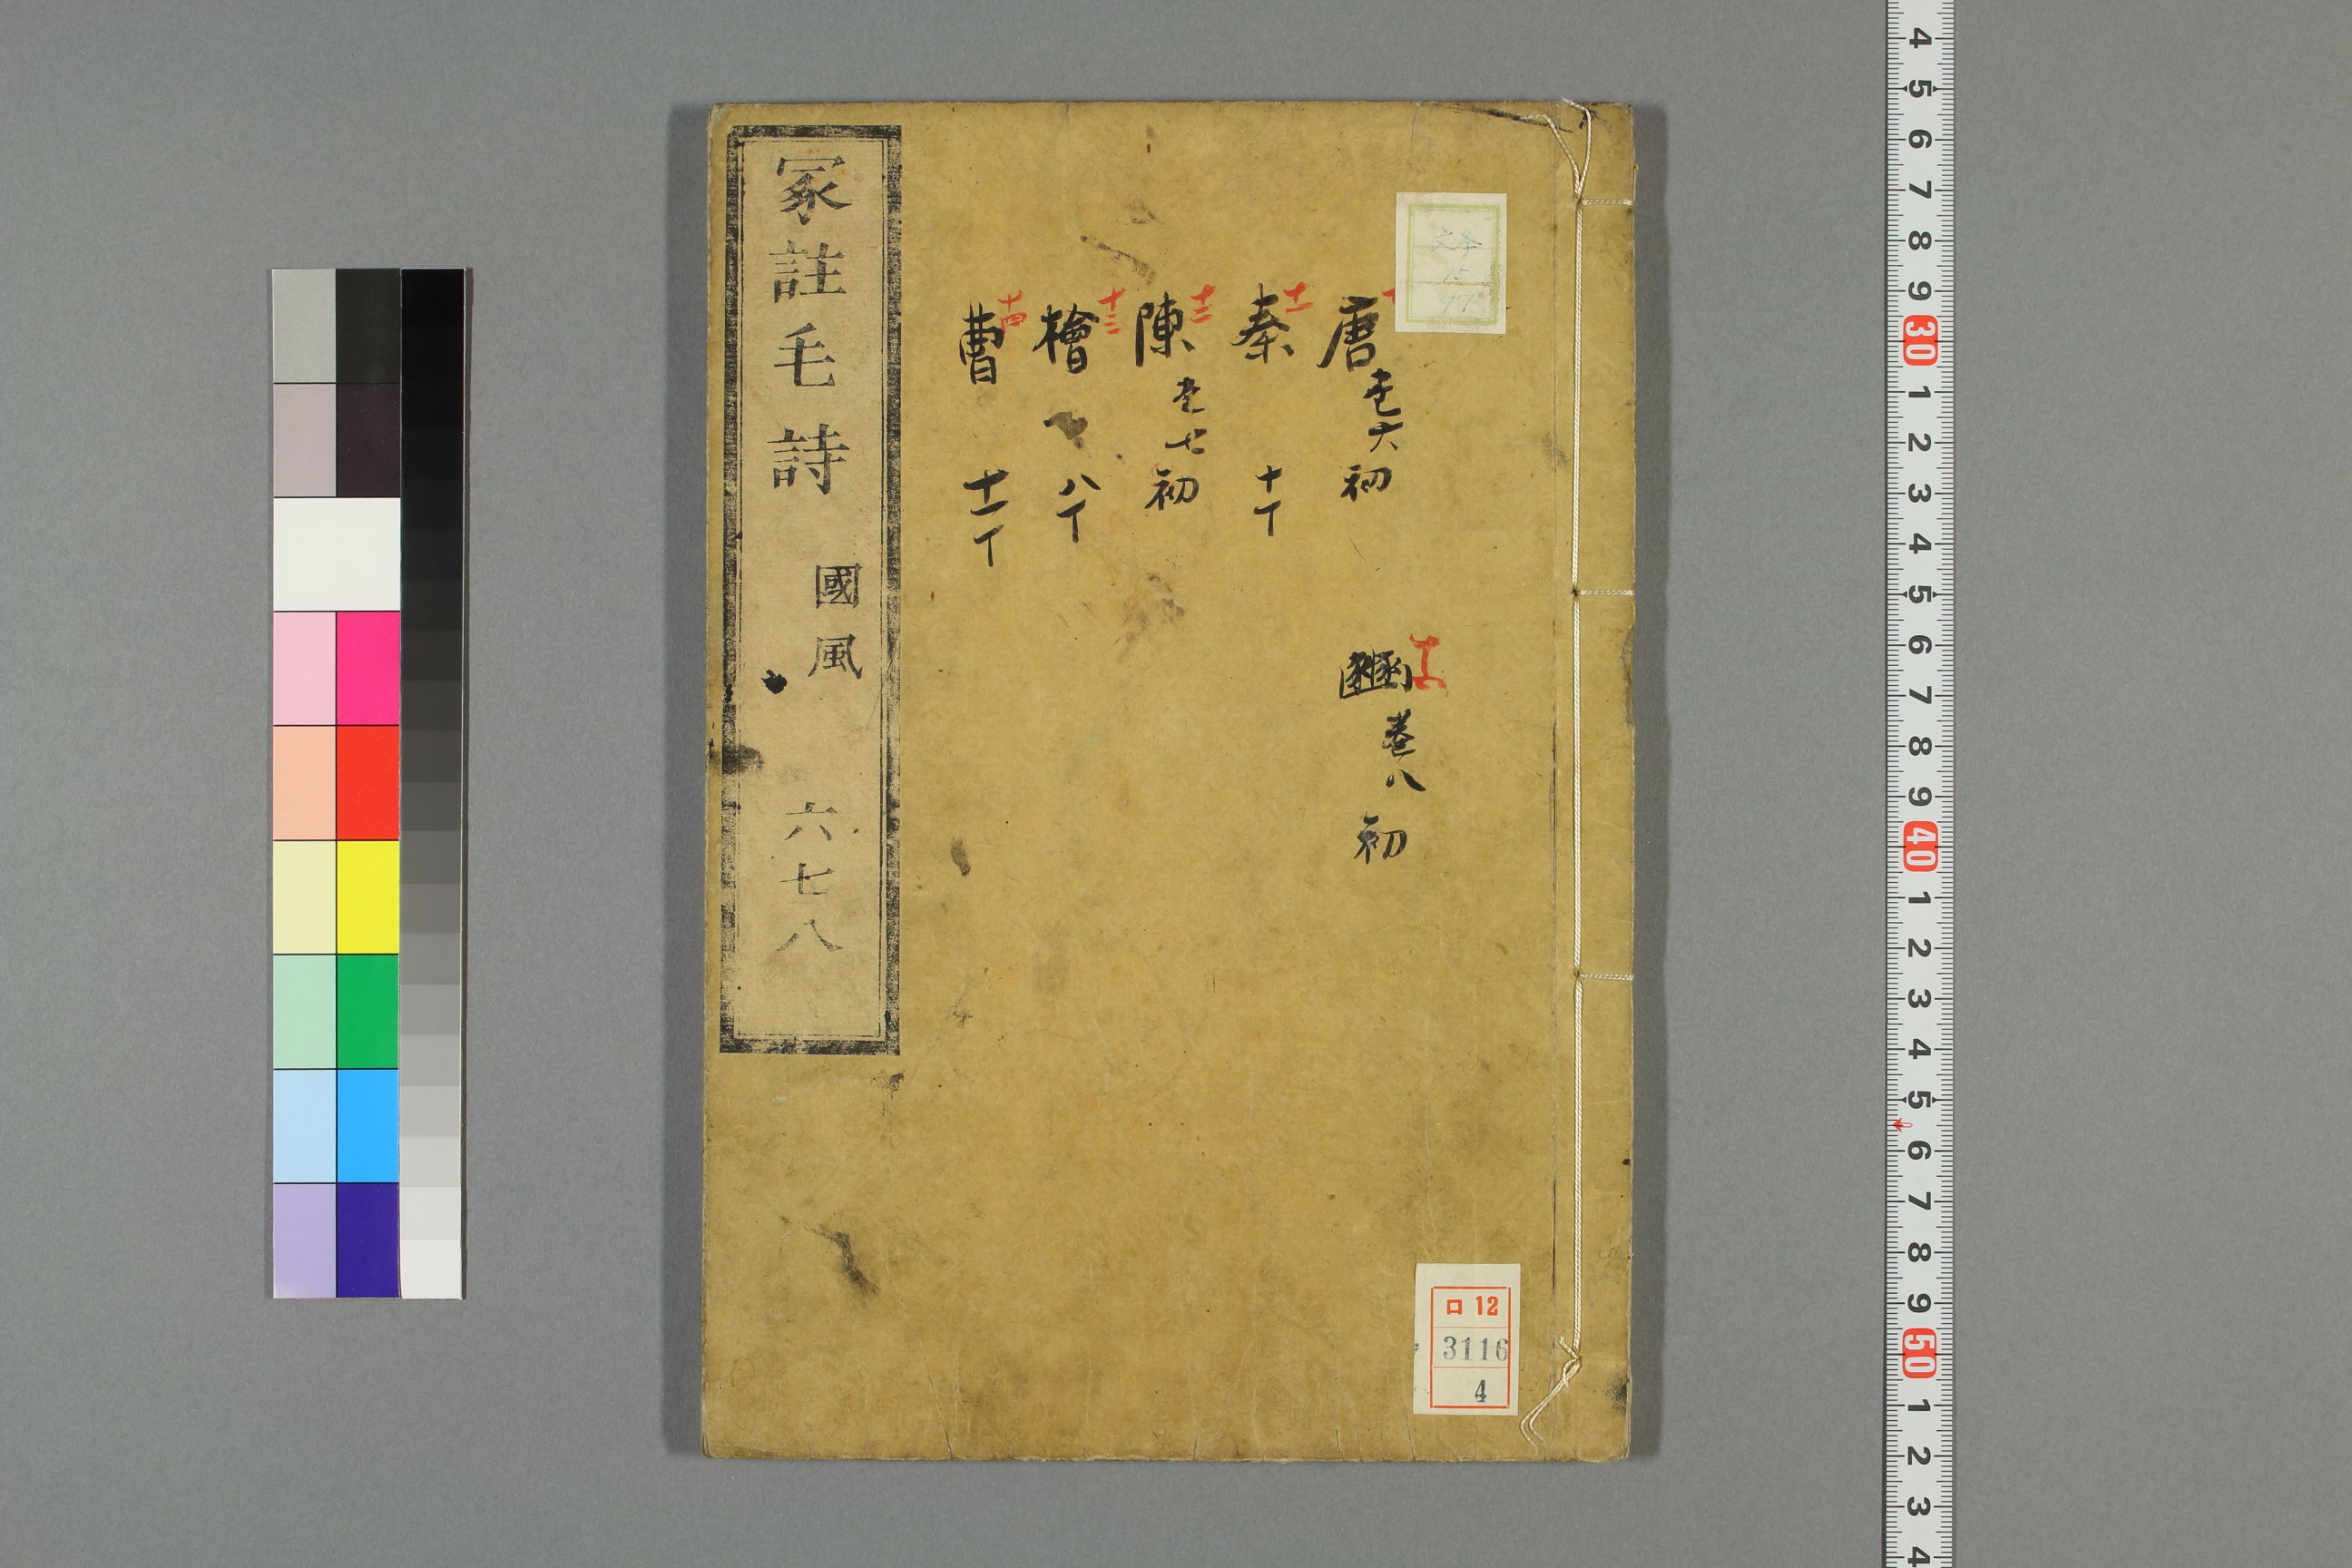 冢註毛詩 國風 六七八
唐 卷六初
十一
秦 十丁
十二
陳 卷七初
十三
檜 八丁
十四
曹 十一丁
十五
豳 卷八初
ロ 12
3116
4
4
5
6
7
8
9
30
1
2
3
4
5
6
7
8
9
40
1
2
3
4
5
6
7
8
9
50
1
2
3
4